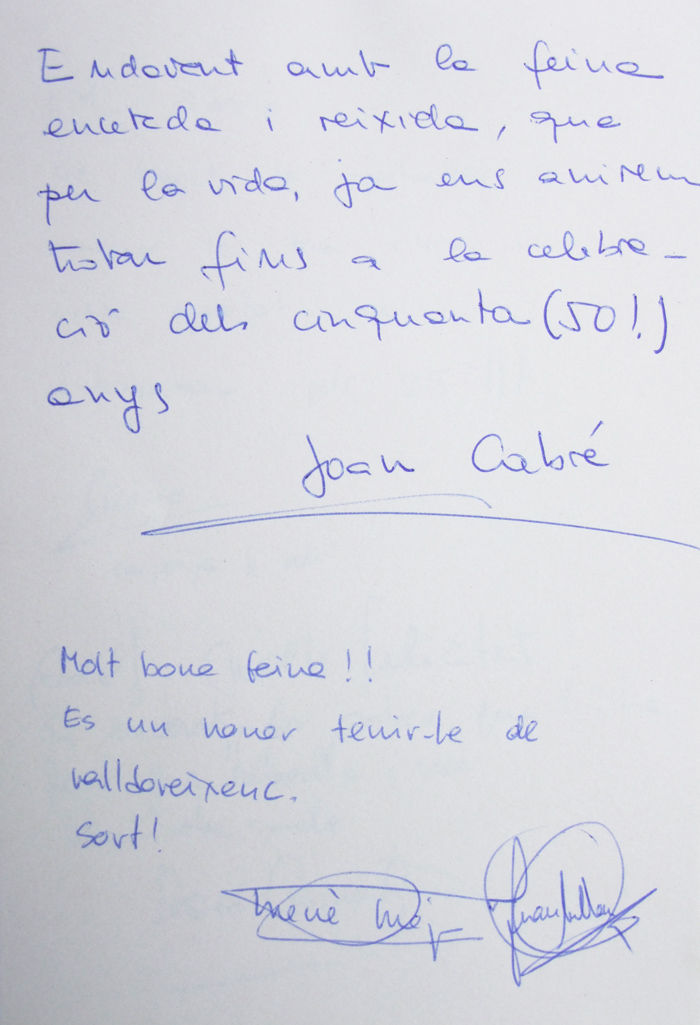 Endavant amb la feina
encetada i reixida, que
per la vida, ja ens anirem
trobar fins a la celebra-
ció dels cinquanta (50!)
anys
Joan Cabré
Molt bona feina!!
Es un honor tenir-te de
valldoreixenc.
Sort!